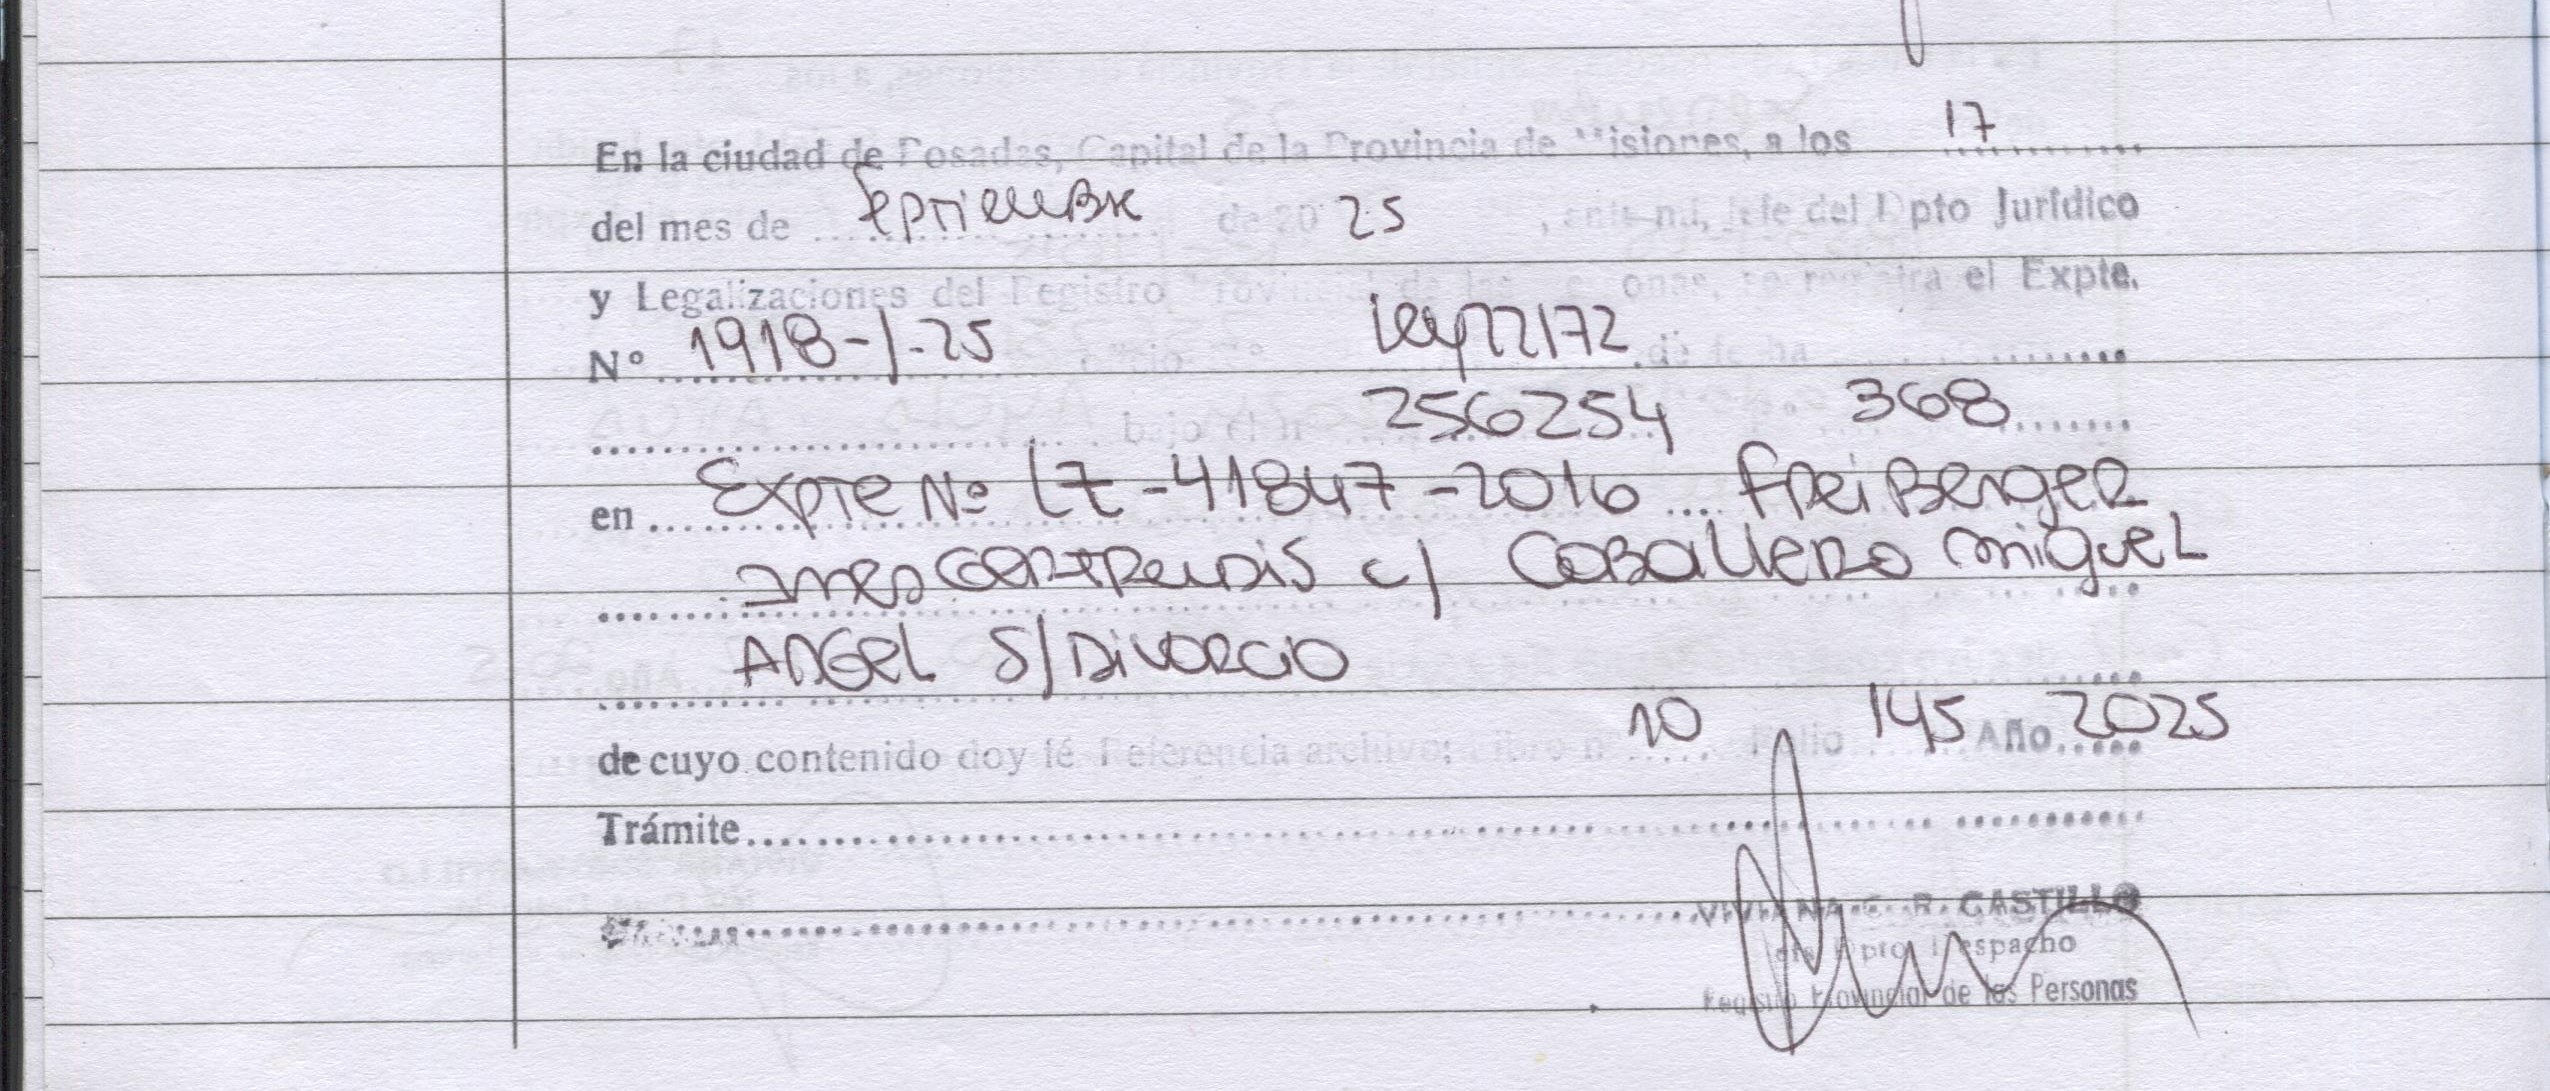 En la ciudad de Posadas, Capital de la Provincia de Misiones, a los 17
del mes de Septiembre de 20 25, ante mí, Jefe del Dpto Jurídico
y Legalizaciones del Registro Provincial de las Personas, se registra el Expte.
Nº 1918-J-25 Ley 22172 de fecha
bajo el nº 256254 368
en Expte Nº LZ-41847-2016 Freiberger
Ines Gertrudis c/ Caballero Miguel
Angel S/Divorcio
de cuyo contenido doy fé Referencia archivo: Libro nº 10 Folio 145 Año 2025
Trámite
VIVIANA E. R. CASTILLO
Jefa Dpto. Despacho
Registro Provincial de las Personas